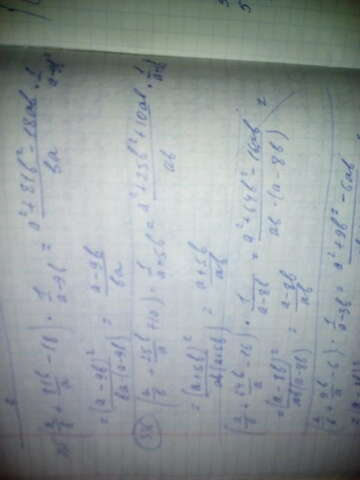 (a/b + 81b/a - 18) · 1/(a-9b) = (a²+81b²-18ab)/(ba) · 1/(a-9b)
= (a-9b)²/(ba(a-9b)) = (a-9b)/(ba)
(a/b + 25b/a + 10) · 1/(a+5b) = (a²+25b²+10ab)/(ab) · 1/(a+5b)
= (a+5b)²/(ab(a+5b)) = (a+5b)/(ab)
(a/b + 64b/a - 16) · 1/(a-8b) = (a²+64b²-16ab)/(ab·(a-8b)) =
= (a-8b)²/(ab(a-8b)) = (a-8b)/(ab)
(a/b + 9b/a - 6) · 1/(a-3b) = a²+9b²-6ab